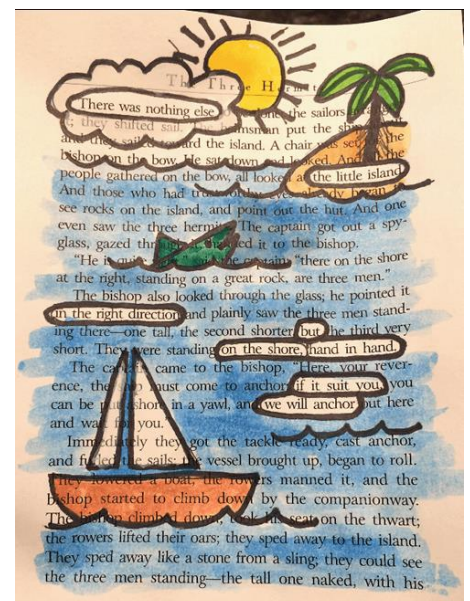 The Three Hermits
There was nothing else the sailors
; they shifted sail. The helmsman put the ship
and they sailed toward the island. A chair was set the
bishop on the bow. He sat down and looked. And the
people gathered on the bow, all looked at the little island
And those who had already began
see rocks on the island, and point out the hut. And one
even saw the three hermits The captain got out a spy-
glass, gazed through it, handed it to the bishop.
"He is said the captain "there on the shore
at the right, standing on a great rock, are three men."
The bishop also looked through the glass; he pointed it
in the right direction and plainly saw the three men stand-
ing there—one tall, the second shorter but the third very
short. They were standing on the shore, hand in hand.
The captain came to the bishop, "Here, your rever-
ence, the must come to anchor if it suit you, you
can be put ashore in a yawl, and we will anchor out here
and wait for you."
Immediately they got the tackle ready, cast anchor,
and furled the sails: the vessel brought up, began to roll.
They lowered a boat, the rowers manned it, and the
bishop started to climb down by the companionway.
The bishop climbed down, took his seat on the thwart;
the rowers lifted their oars; they sped away to the island.
They sped away like a stone from a sling; they could see
the three men standing—the tall one naked, with his